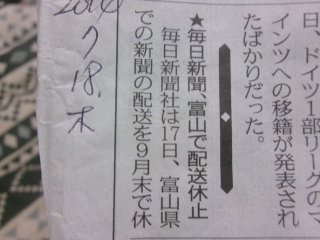 日、ドイツ1部リーグのマ
インツへの移籍が発表され
たばかりだった。
★毎日新聞、富山で配送休止
毎日新聞社は17日、富山県
での新聞の配送を9月末で休
2024
7
18.
木